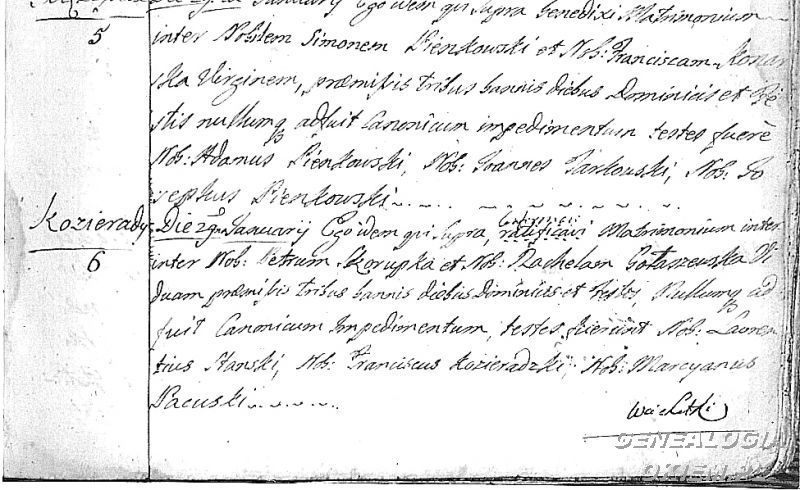 5 Januarij Ego idem qui Supra benedixi Matrimonium
inter Nobilem Simonem Pienkowski et Nob: Franciscam Konar
ska Virginem, præmissis tribus bannis diebus Dominicis et Fe
stis nullumq adfuit Canonicum impedimentum testes fuerē
Nob: Adamus Pienkowski, Nob: Joannes Jarkowski, Nob: Jo
sephus Pienkowski
Kozierady Die 29 Januarij Ego idem qui Supra, ratificavi Matrimonium inter
6 inter Nob: Petrum Skorupka et Nob: Rachelam Gołaszewska Vi
duam præmissis tribus bannis diebus Dominicis et Festis, Nullumq ad
fuit Canonicum Impedimentum, testes fuerunt Nob: Lauren
tius Hanski, Nob: Franciscus Kozieradzki, Nob: Marcyanus
Pacuski
GENEALOGIA